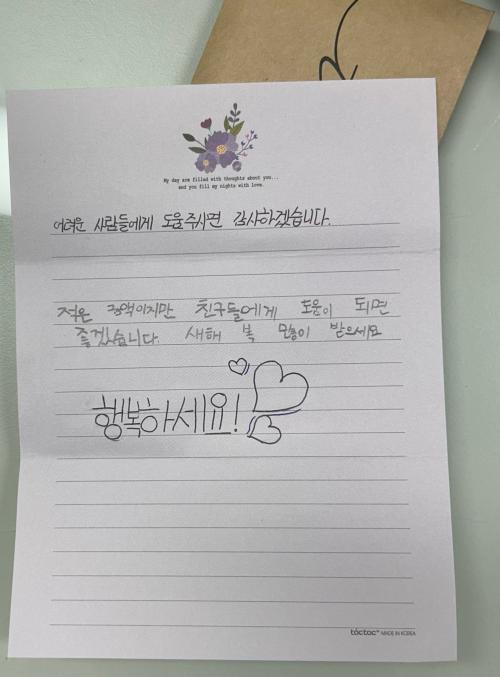 My day are filled with thoughts about you...
and you fill my nights with love.
어려운 사람들에게 도움주시면 감사하겠습니다.
적은 금액이지만 친구들에게 도움이 되면
좋겠습니다. 새해 복 많이 받으세요
행복하세요!
tóctoc MADE IN KOREA